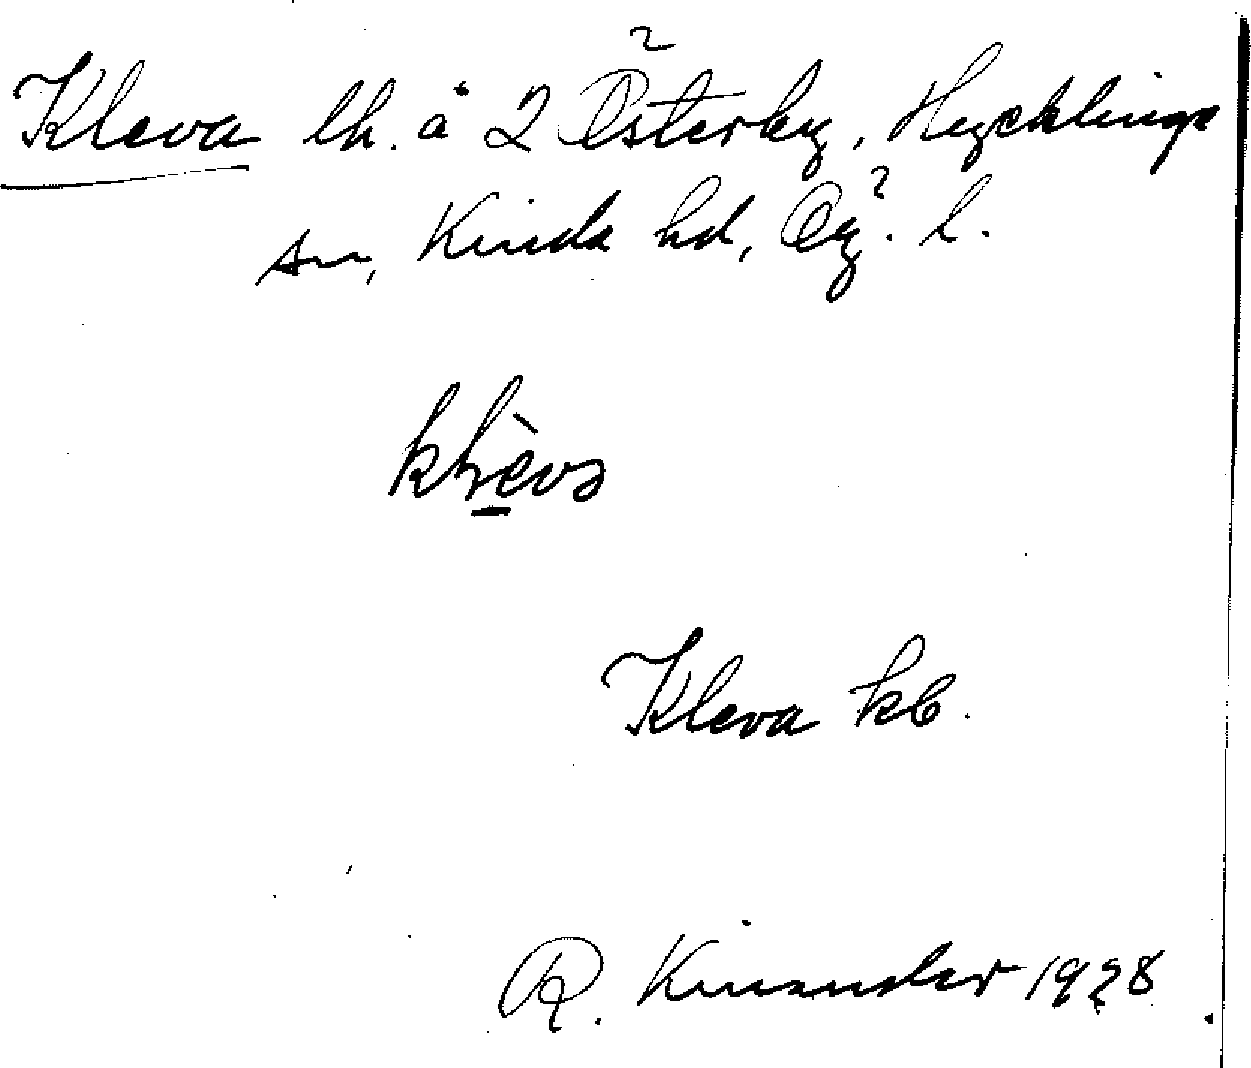 Kleva lh. å 2 Österby, Hycklinge
sn, Kinda hd, Ög. l.
Kleva kb.
R. Kinander 1928